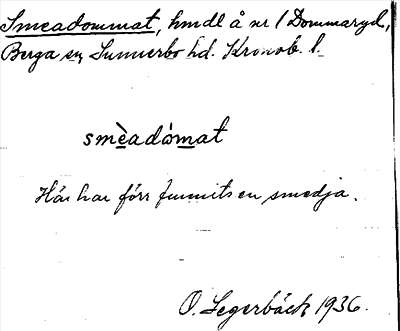 Smeadommat, hmdl å nr 1 Dommaryd,
Berga sn, Sunnerbo hd. Kronob. l.
smèadómat
Här har förr funnits en smedja.
O. Segerbäck 1936.